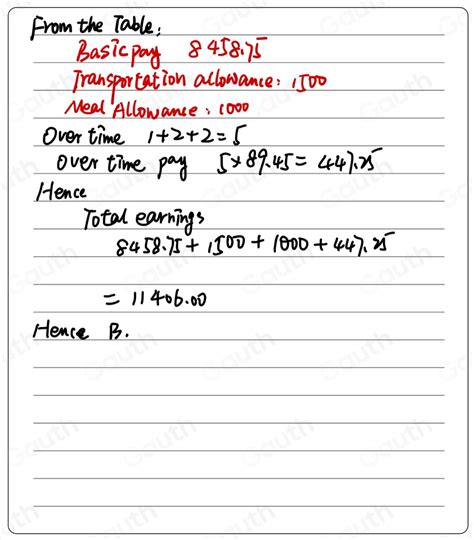 From the Table:
Basic pay 8458.75
Transportation allowance: 1500
Meal Allowance: 1000
Over time 1+2+2=5
Over time pay 5×89.45=447.25
Hence
Total earnings
8458.75+1500+1000+447.25
=11406.00
Hence B.